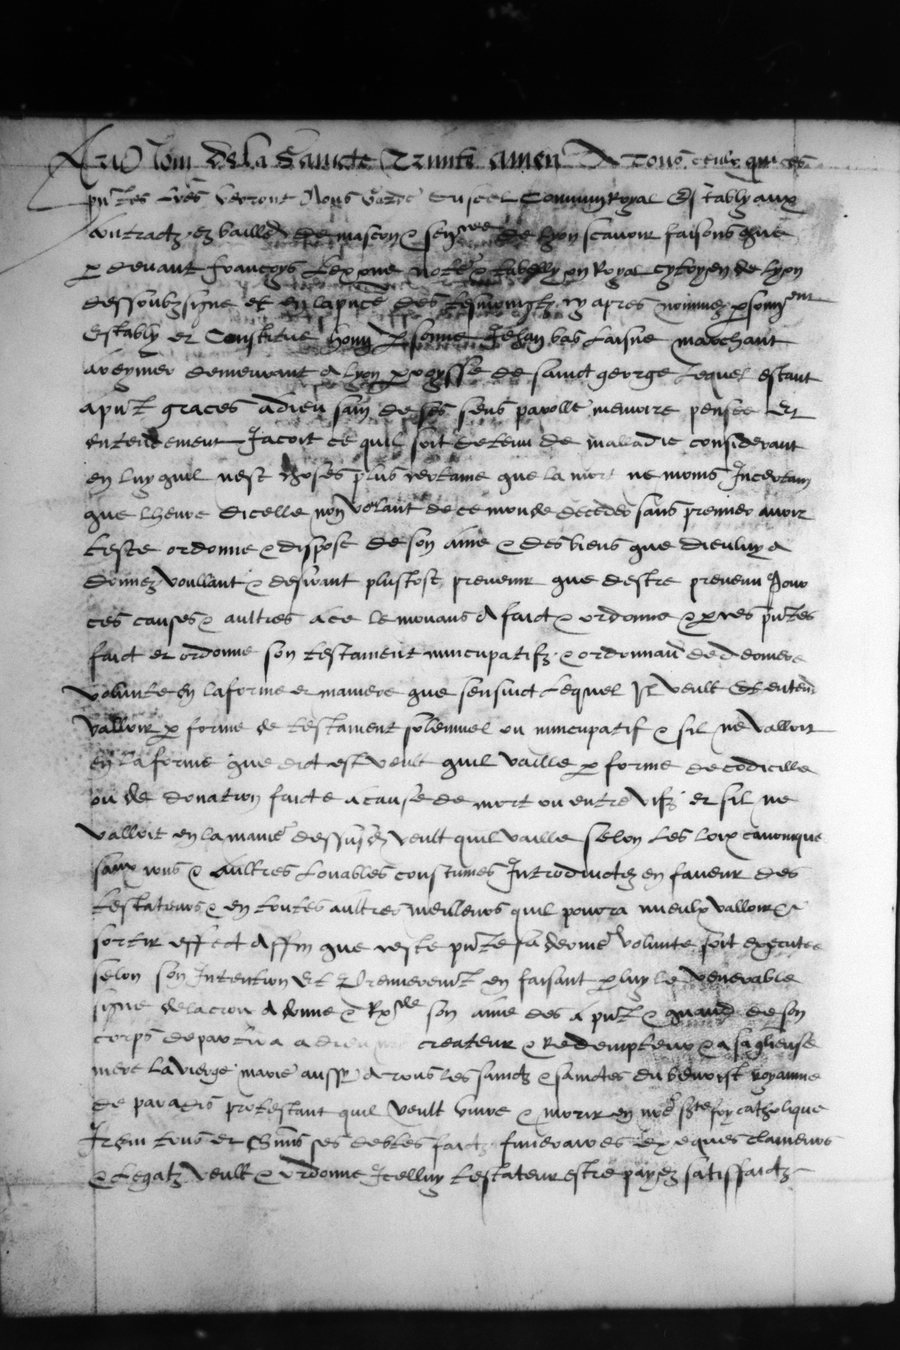 Au Nom de la Saincte Trinite amen A tous ceulx qui ces
pntes lres verront Nous garde du scel Commun Royal Estably aux
contractz ez bailliage de mascon et sennes de lyon scavoir faisons que
p devant francoys notre et tabellyon Royal cytoyen de lyon
dessoubzsigne et en la pnce des tesmoingtz cy apres nommez psonnent
Estably et Constitue honn psonne Jehan bas Laisne marchant
demeurant a lyon paroysse de sainct george Lequel estant
a pnt graces a dieu sain de ses sens parolle memoire pensee Et
entendement Jacoit ce quil soit detenu de malladie considerant
en luy quil nest choses plus certaine que la mort ne moins Incertain
que lheure dicelle non volant de ce monde deceder sans premier avoir
teste ordonne et dispose de son ame et des biens que dieu luy a
donnez voullant et desirant plustost prevenir que destre prevenu Pour
ces causes et aultres a ce le movans A faict et ordonne et p ces pntes
faict et ordonne son testament nuncupatifz et ordonnan de derniere
volunte en la forme et maniere que sensuict Lequel Il veult Et entend
valloir p forme de testament solemnel ou nuncupatif et sil ne valloit
En la forme que dict est veult quil vaille p forme de codicille
ou de donation faicte a cause de mort ou entre vifz et sil ne
valloit en la manie dessusd veult quil vaille selon les loix canonique
sanx cons et aultres louables coustumes Introductez en faveur des
testateurs et en toutes aultres meilleurs quil pourra mieulx valloir et
sortir effect Affin que ceste pnte sa derniere volunte soit executee
selon son Intention Et Premierement en faisant p luy le venerable
signe de la croix A donne et son ame des a pnt et quand de son
corps departira a dieu createur et Redempteur et a sa glieuse
mere la vierge marie aussy a tous les sainctz et sainctes du benoist royaume
de paradis protestant quil veult vivre et morir en nre ste foy catholique
Item tous et chuns ses debtes faictz funeraires exeques clameurs
et legatz veult et ordonne Icelluy testateur estre payez satisfaictz